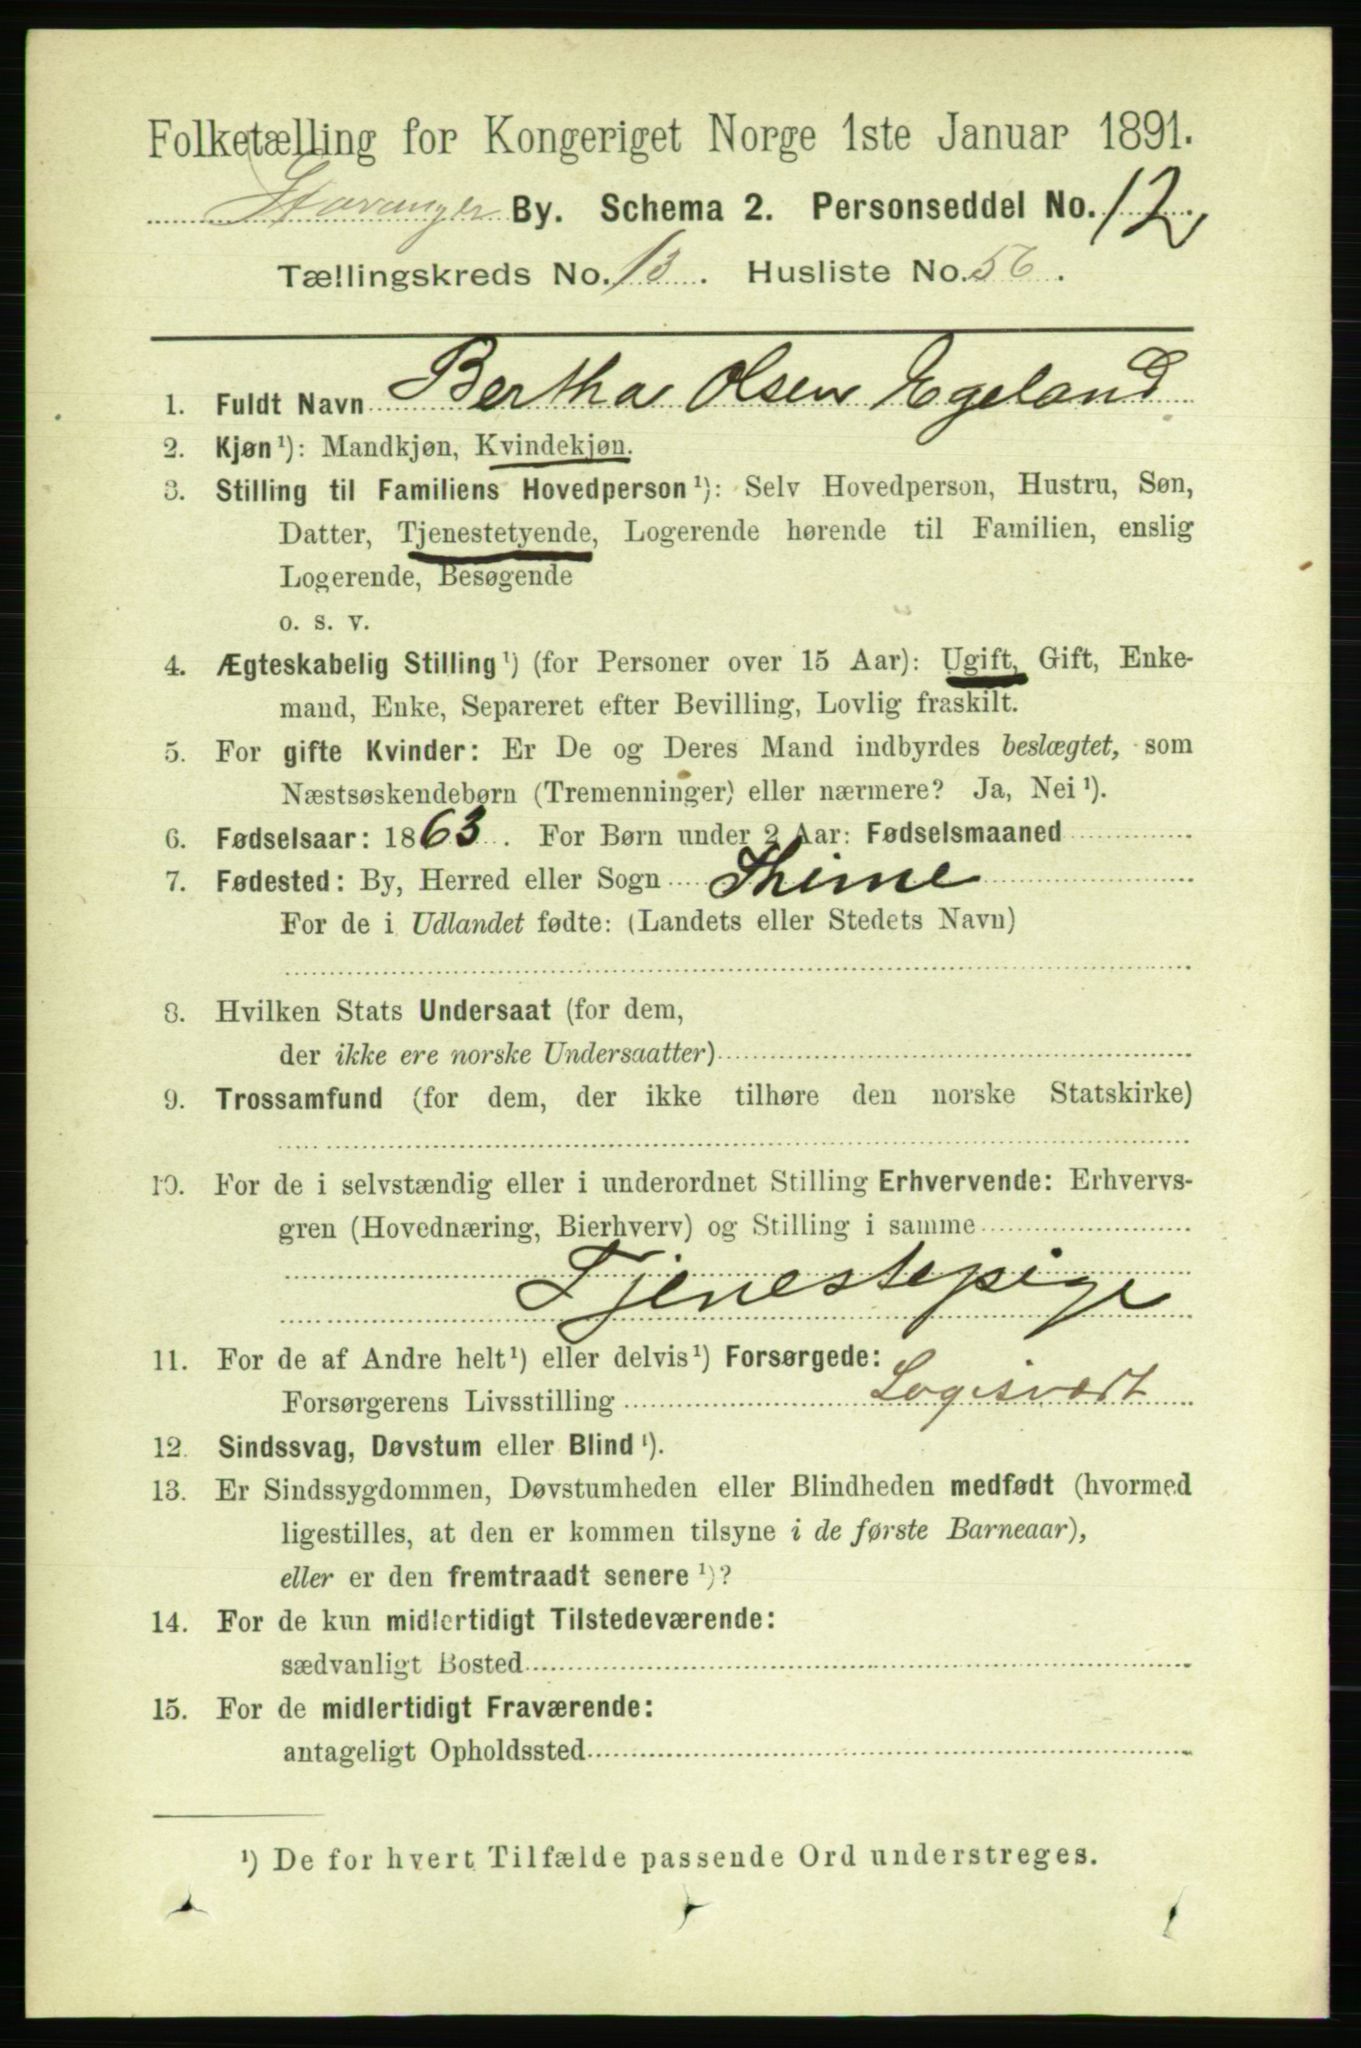 Folketælling for Kongeriget Norge 1ste Januar 1891.
Stavanger By. Schema 2. Personseddel No. 12
Tællingskreds No. 13. Husliste No. 56.
1. Fuldt Navn Bertha Olsen Egeland
2. Kjøn¹): Mandkjøn, Kvindekjøn.
3. Stilling til Familiens Hovedperson¹): Selv Hovedperson, Hustru, Søn,
Datter, Tjenestetyende, Logerende hørende til Familien, enslig
Logerende, Besøgende
o. s. v.
4. Ægteskabelig Stilling¹) (for Personer over 15 Aar): Ugift, Gift, Enke-
mand, Enke, Separeret efter Bevilling, Lovlig fraskilt.
5. For gifte Kvinder: Er De og Deres Mand indbyrdes beslægtet, som
Næstsøskendebørn (Tremenninger) eller nærmere? Ja, Nei¹).
6. Fødselsaar: 1863. For Børn under 2 Aar: Fødselsmaaned
7. Fødested: By, Herred eller Sogn Thime
For de i Udlandet fødte: (Landets eller Stedets Navn)
8. Hvilken Stats Undersaat (for dem,
der ikke ere norske Undersaatter)
9. Trossamfund (for dem, der ikke tilhøre den norske Statskirke)
10. For de i selvstændig eller i underordnet Stilling Erhvervende: Erhvervs-
gren (Hovednæring, Bierhverv) og Stilling i samme
Tjenestepige
11. For de af Andre helt¹) eller delvis¹) Forsørgede:
Forsørgerens Livsstilling Logisvært
12. Sindssvag, Døvstum eller Blind¹).
13. Er Sindssygdommen, Døvstumheden eller Blindheden medfødt (hvormed
ligestilles, at den er kommen tilsyne i de første Barneaar),
eller er den fremtraadt senere¹)?
14. For de kun midlertidigt Tilstedeværende:
sædvanligt Bosted
15. For de midlertidigt Fraværende:
antageligt Opholdssted
¹) De for hvert Tilfælde passende Ord understreges.